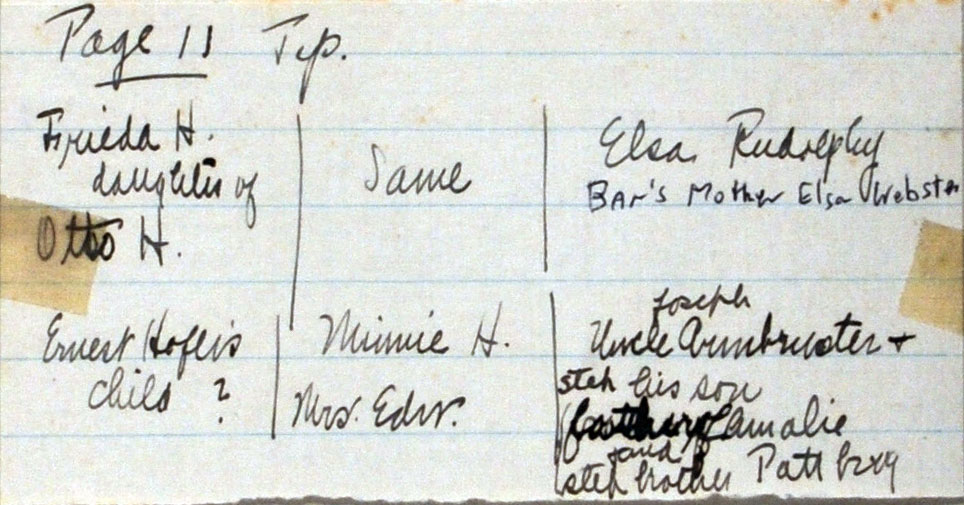 Page 11 Top.
Frieda H.
daughter of
Otto H.
Same
Elsa Rudolphy
BAr's Mother Elsa Webster
Ernest Hofer's
child ?
Minnie H.
Mrs. Edw.
Joseph
Uncle Armbruster +
step his son
of Amalie
and
step brother